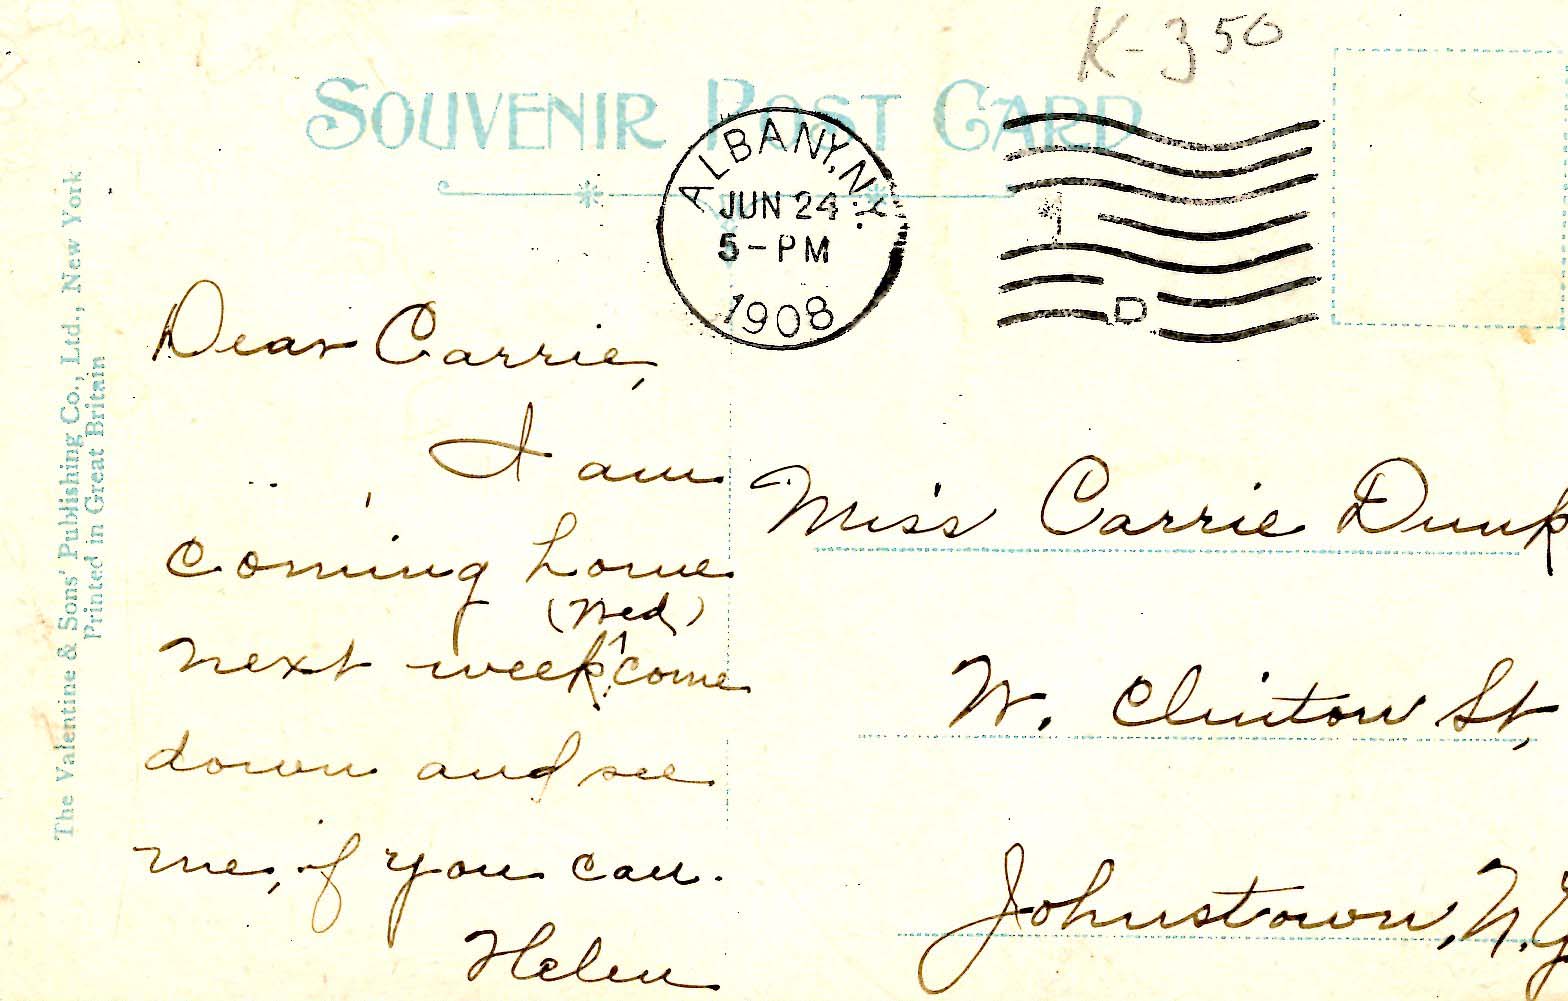 K-350
SOUVENIR POST CARD
ALBANY, N.Y.
JUN 24
5-PM
1908
D
The Valentine & Sons' Publishing Co., Ltd., New York
Printed in Great Britain
Dear Carrie,
I am
coming home
(Wed)
next week come
down and see
me, if you can.
Helen
Miss Carrie Dunk
W. Clinton St,
Johnstown, N.Y